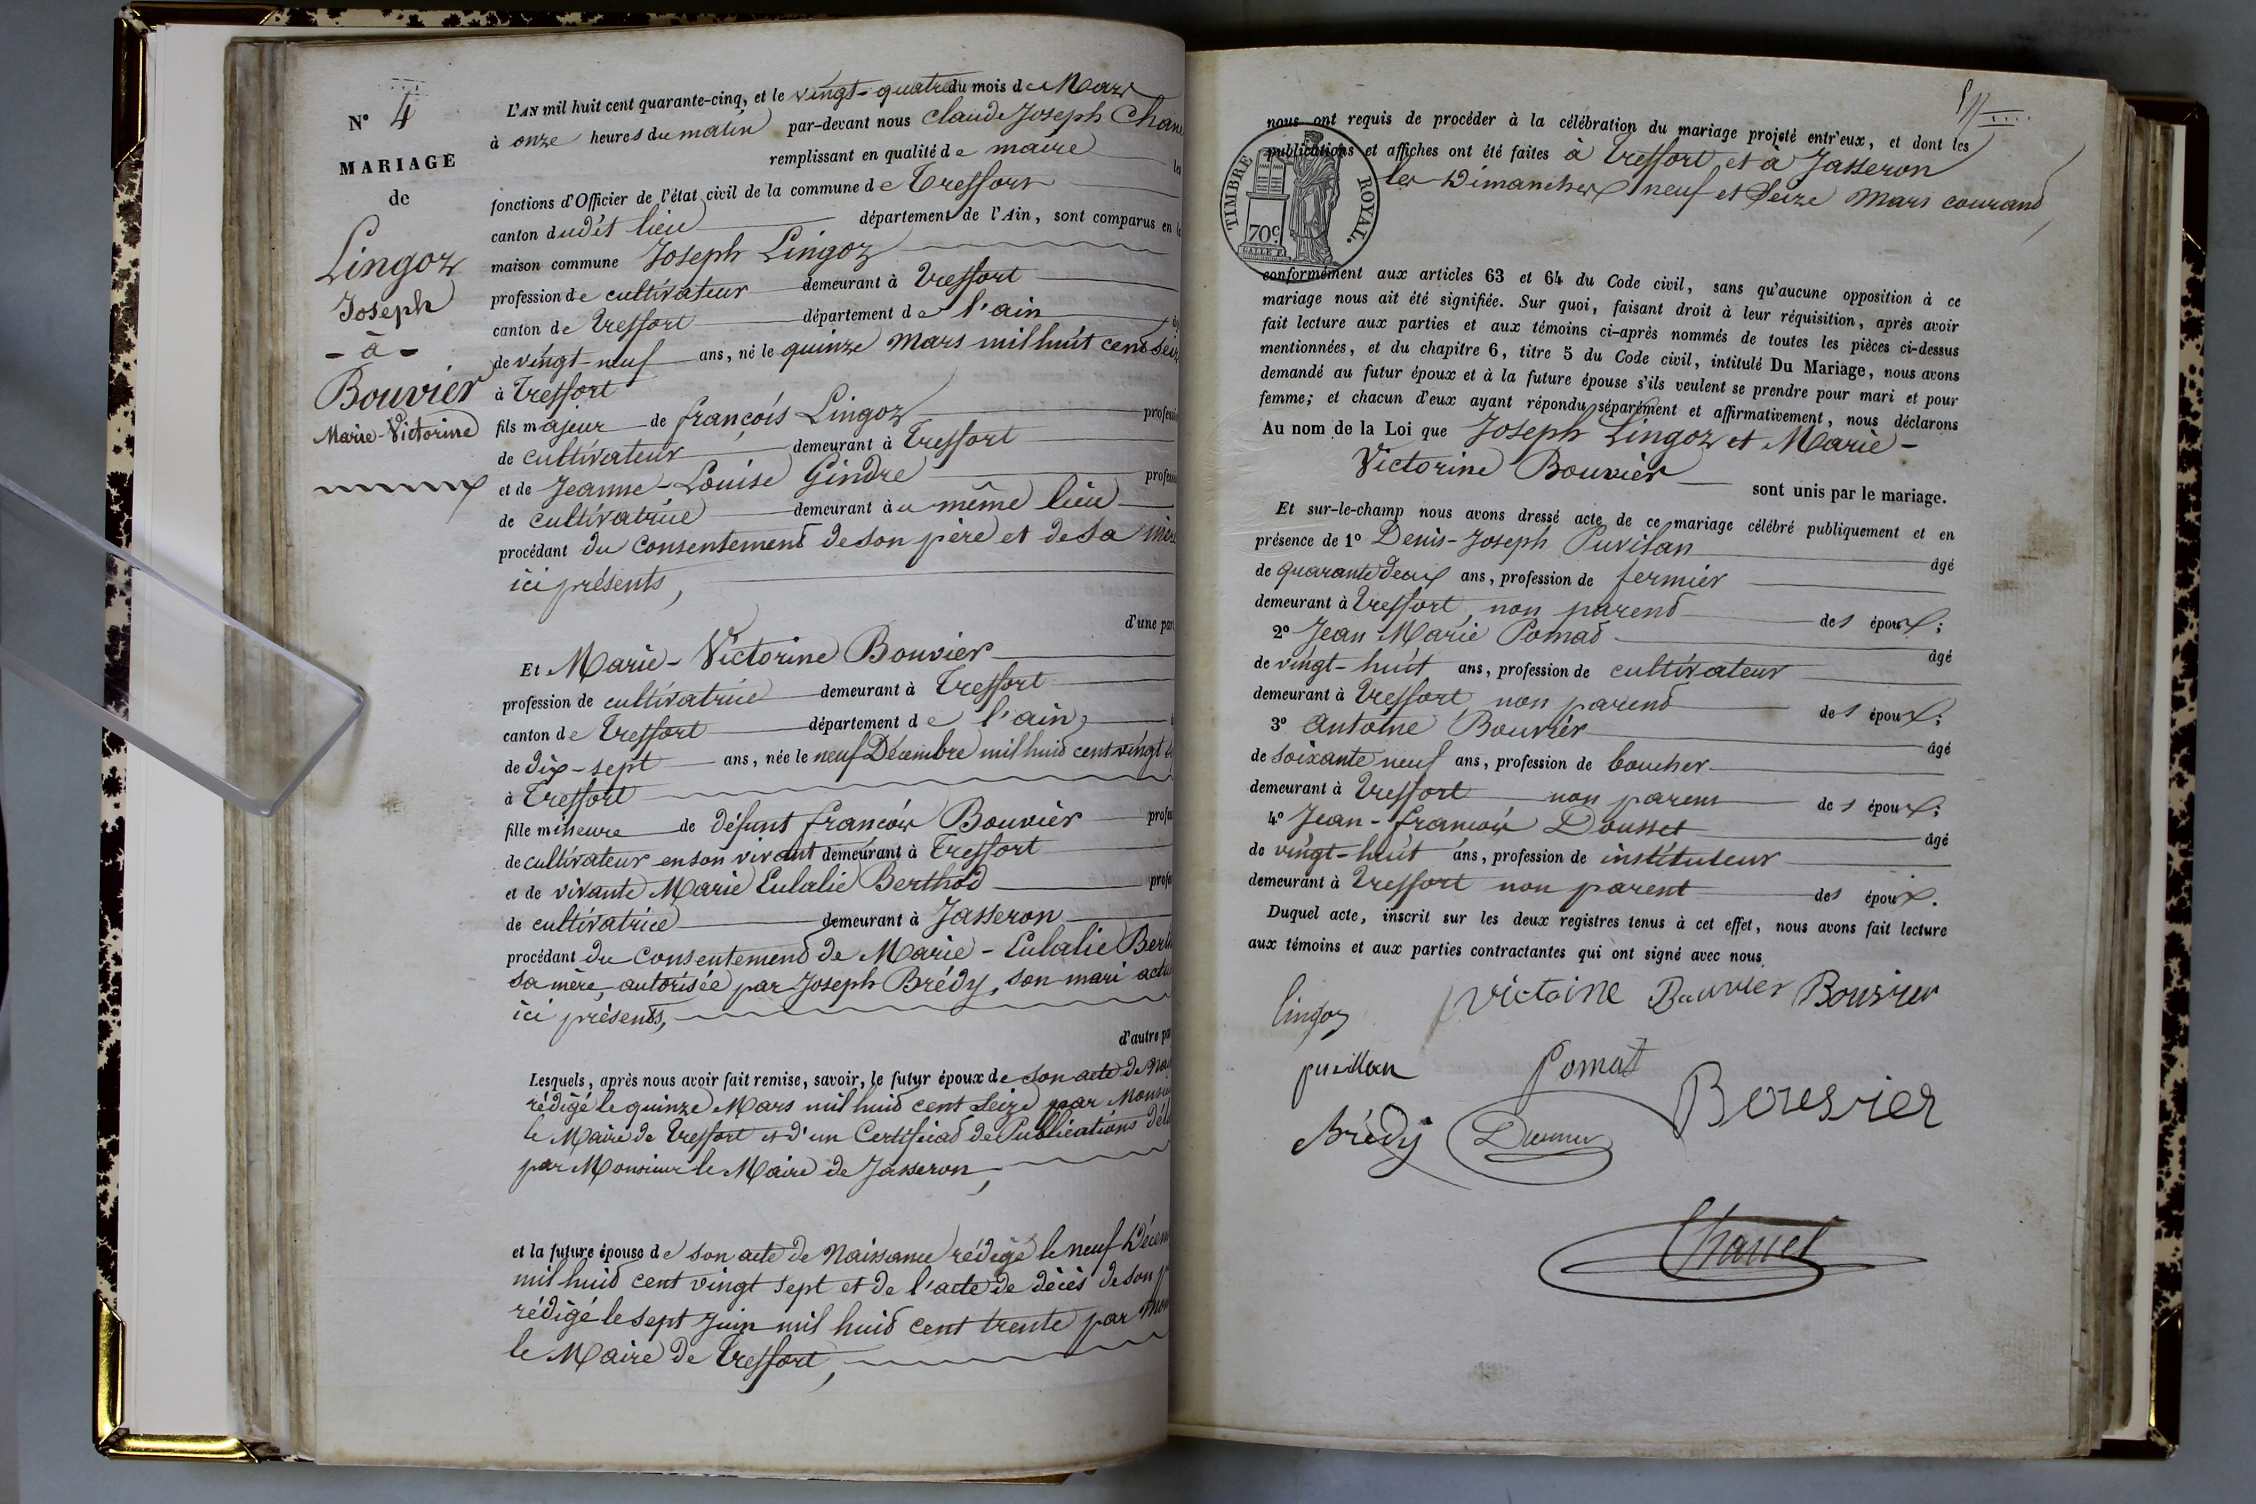 N° 4
MARIAGE
de
Lingoz
Joseph
- à -
Bouvier
Marie-Victorine
L'AN mil huit cent quarante-cinq, et le vingt-quatre du mois de Mars
à onze heures du matin par-devant nous Claude Joseph Chanel
remplissant en qualité de maire les
fonctions d'Officier de l'état civil de la commune de Treffort
canton dudit lieu département de l'Ain, sont comparus en la
maison commune Joseph Lingoz
profession de cultivateur demeurant à Treffort
canton de Treffort département de l'ain
de vingt-neuf ans, né le quinze Mars mil huit cent seize
à Treffort
fils majeur de françois Lingoz profession
de cultivateur demeurant à Treffort
et de Jeanne-Louise Gindre profession
de cultivatrice demeurant au même lieu
procédant du consentement de son père et de sa mère
ici présents,
d'une part
Et Marie-Victorine Bouvier
profession de cultivatrice demeurant à Treffort
canton de Treffort département de l'ain,
de dix-sept ans, née le neuf Décembre mil huit cent vingt
à Treffort
fille mineure de défunt françois Bouvier profes
de cultivateur en son vivant demeurant à Treffort
et de vivante Marie Eulalie Berthod profe
de cultivatrice demeurant à Jasseron
procédant du consentement de Marie-Eulalie Berth
sa mère, autorisée par Joseph Brédy, son mari actu
ici présents,
d'autre pa
Lesquels, après nous avoir fait remise, savoir, le futur époux de son acte de Nai
rédigé le quinze Mars mil huit cent seize par Monsieu
le Maire de Treffort et d'un Certificat de Publications déli
par Monsieur le Maire de Jasseron,
et la future épouse de son acte de Naissance rédigé le neuf Décem
mil huit cent vingt sept et de l'acte de décès de son p
rédigé le sept Juin mil huit cent trente par Mon
le Maire de Treffort,
nous ont requis de procéder à la célébration du mariage projeté entr'eux, et dont les
publications et affiches ont été faites à Treffort et à Jasseron
les Dimanches neuf et seize Mars courant
TIMBRE ROYAL.
70c.
conformément aux articles 63 et 64 du Code civil, sans qu'aucune opposition à ce
mariage nous ait été signifiée. Sur quoi, faisant droit à leur réquisition, après avoir
fait lecture aux parties et aux témoins ci-après nommés de toutes les pièces ci-dessus
mentionnées, et du chapitre 6, titre 5 du Code civil, intitulé Du Mariage, nous avons
demandé au futur époux et à la future épouse s'ils veulent se prendre pour mari et pour
femme; et chacun d'eux ayant répondu séparément et affirmativement, nous déclarons
Au nom de la Loi que Joseph Lingoz et Marie-
Victorine Bouvier sont unis par le mariage.
Et sur-le-champ nous avons dressé acte de ce mariage célébré publiquement et en
présence de 1° Denis-Joseph Puvilan âgé
de quarante deux ans, profession de fermier
demeurant à Treffort non parent des époux;
2° Jean Marie Pomat âgé
de vingt-huit ans, profession de cultivateur
demeurant à Treffort non parent des époux;
3° Antoine Bouvier âgé
de soixante neuf ans, profession de boucher
demeurant à Treffort non parent des époux;
4° Jean-françois Dousset âgé
de vingt-huit ans, profession de instituteur
demeurant à Treffort non parent des époux.
Duquel acte, inscrit sur les deux registres tenus à cet effet, nous avons fait lecture
aux témoins et aux parties contractantes qui ont signé avec nous
lingoz victoine Bouvier Bouvier
puvillan Pomat Bouvier
Brédy
Chanel